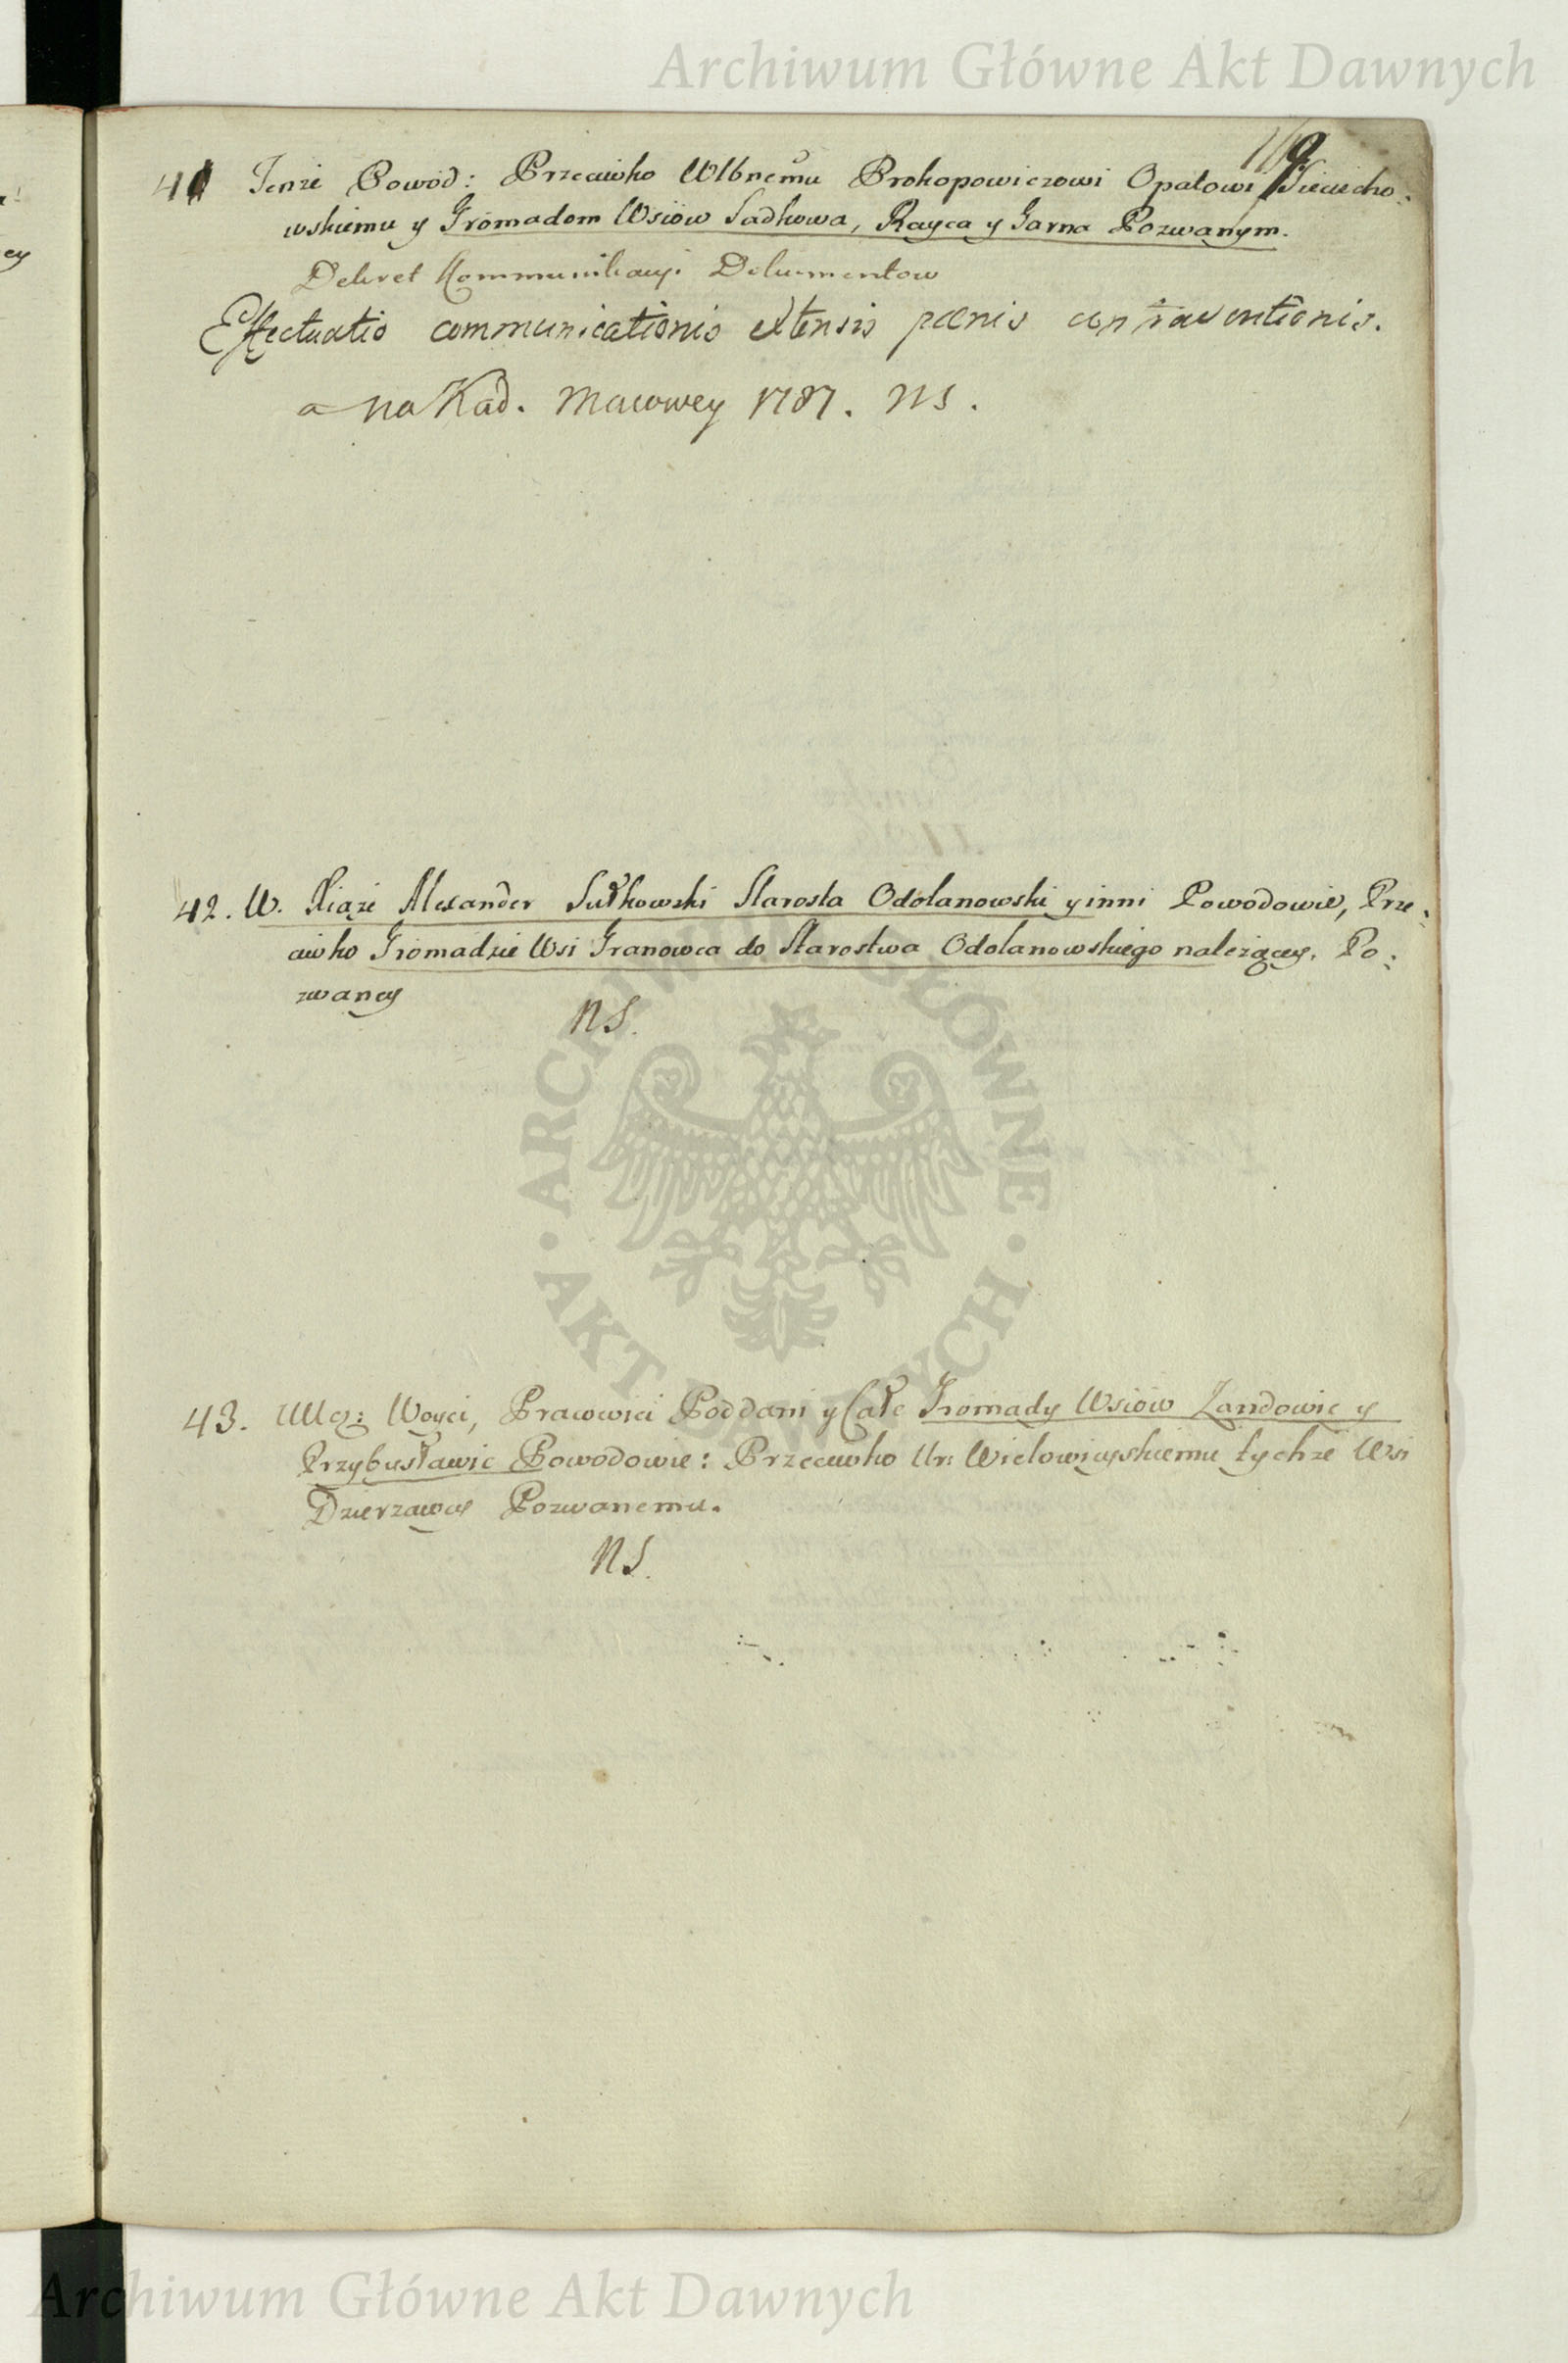 Archiwum Główne Akt Dawnych
41 Tenże Powod: Przeciwko Wlbnemu Prokopowiczowi Opatowi Sieciecho:
wskiemu y Gromadom Wsiow Sadkowa, Rayca y Garna Pozwanym.
Dekret Kommunikacyi Dokumentow
Effectuatio communicationis extensis poenis contraventionis.
a na Kad. Macowey 1787. NS.
42. W. Xiąże Alexander Sułkowski Starosta Odolanowski y inni Powodowie, Prze:
ciwko Gromadzie Wsi Granowca do Starostwa Odolanowskiego należącey, Po:
zwaney
NS.
ARCHIWUM GŁÓWNE • AKT DAWNYCH •
43. Woyci, Pracowici Poddani y Całe Gromady Wsiow Zandowic y
Przybusławic Powodowie: Przeciwko Ur: Wielowieyskiemu tychże Wsi
Dzierzawcy Pozwanemu.
NS.
Archiwum Główne Akt Dawnych